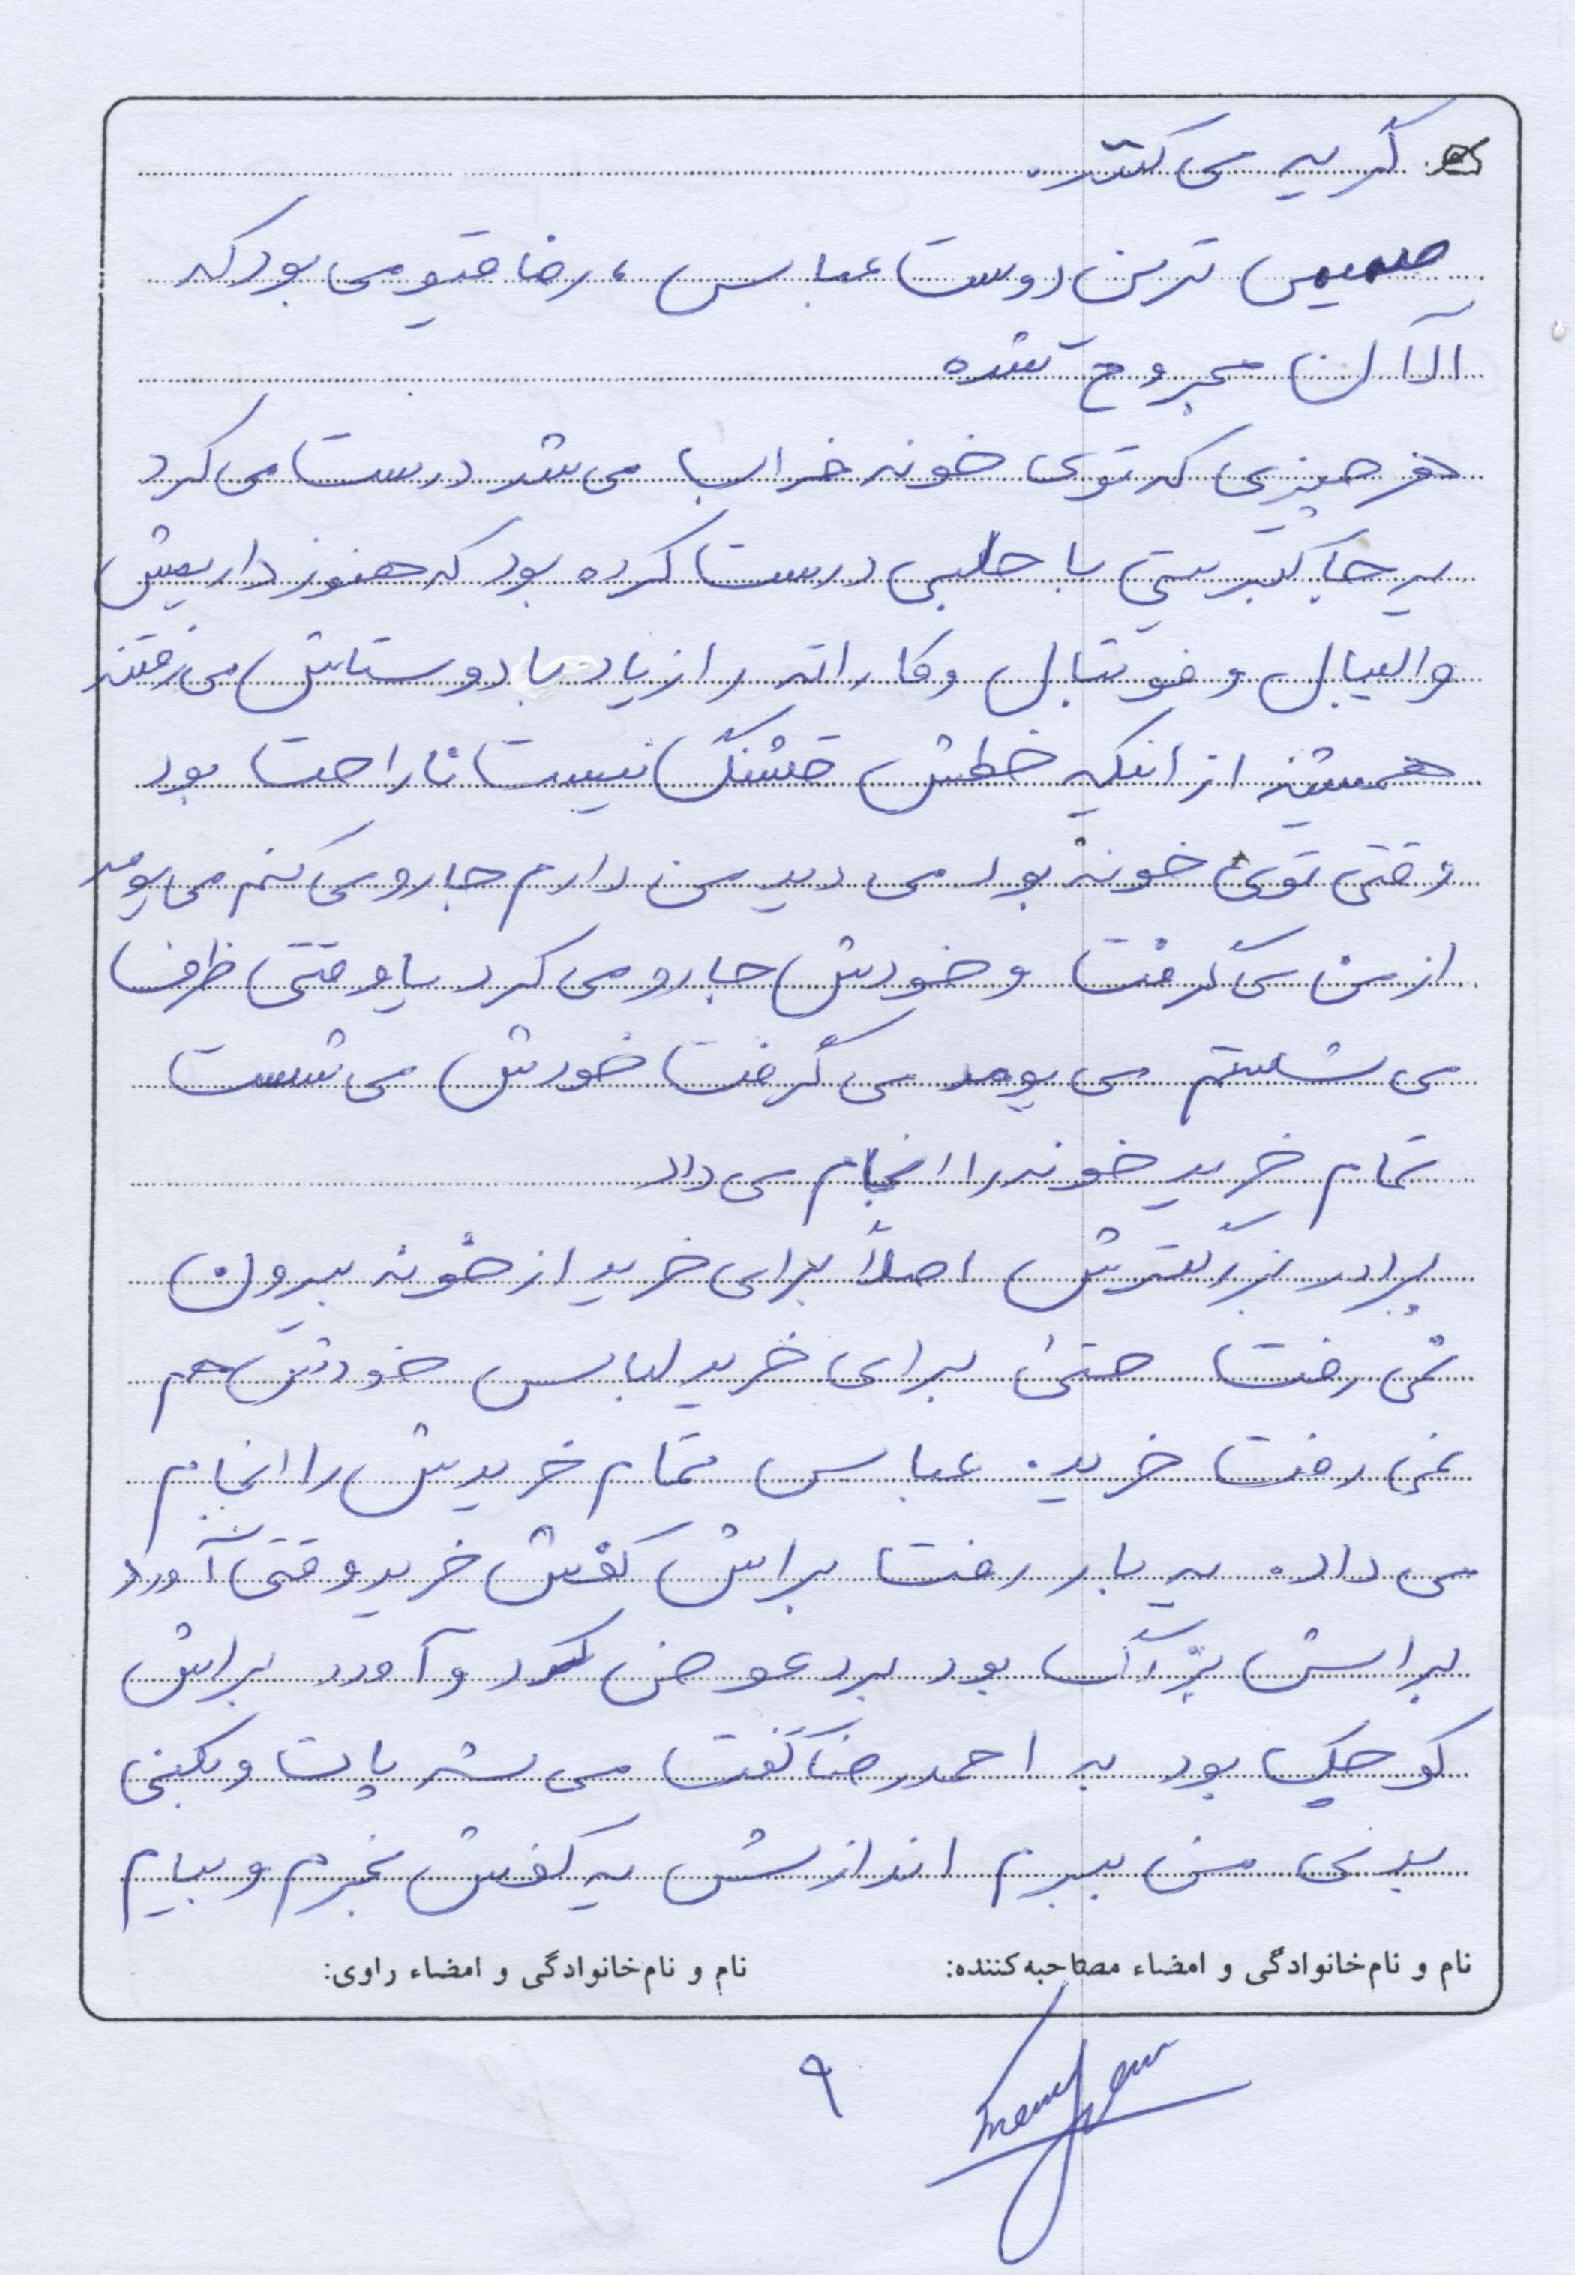 گریه می کنند.
صمیمی ترین دوست عباس، رضا قیومی بود که
الآن مجروح شده
هر چیزی که توی خونه خراب می شد درست می کرد
یه جا کبریتی با حلبی درست کرده بود که هنوز داریمش
والیبال و فوتبال و کاراته را زیاد با دوستاش می رفتند
همیشه از اینکه خطش قشنگ نیست ناراحت بود
وقتی توی خونه بود می دید من دارم جارو می کنم می یومد
از من می گرفت و خودش جارو می کرد یا وقتی ظرف
می شستم می یومد می گرفت خودش می شست
تمام خرید خونه را انجام می داد
برادر بزرگترش اصلاً برای خرید از خونه بیرون
نمی رفت حتی برای خرید لباس خودش هم
نمی رفت خرید. عباس تمام خریدش را انجام
می داد. یه بار رفت براش کفش خرید وقتی آورد
براش بزرگ بود برد عوض کرد و آورد براش
کوچک بود به احمدرضا گفت می شه پات و بکنی
بدی من ببرم اندازش یه کفش بخرم و بیام
نام و نام‌خانوادگی و امضاء مصاحبه‌کننده: نام و نام‌خانوادگی و امضاء راوی:
۹